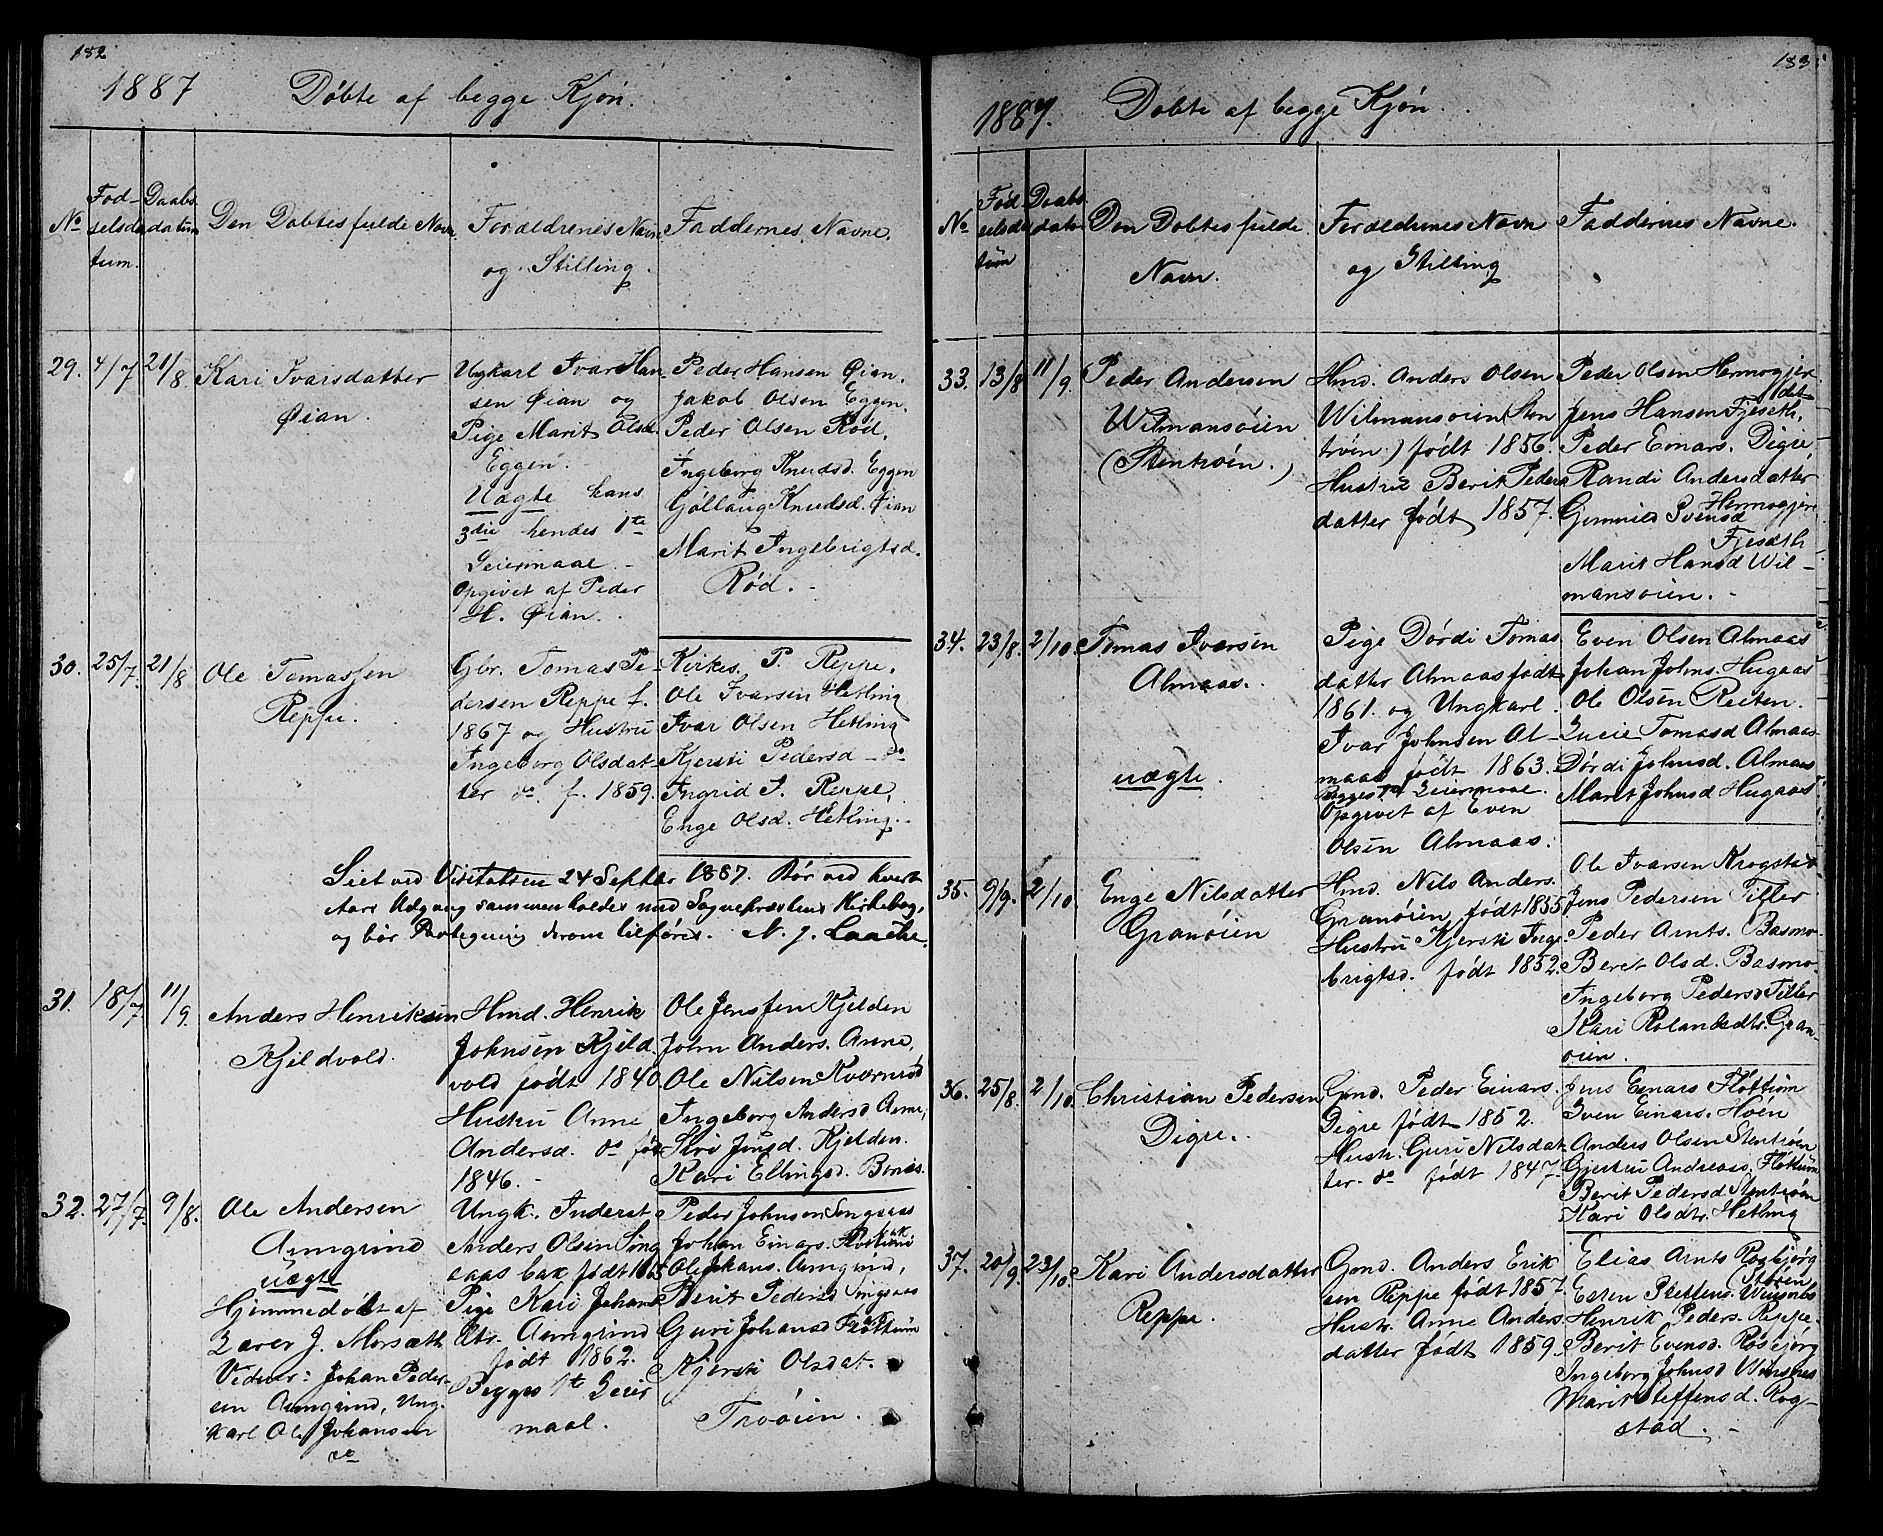 182
1887 Döbte af begge Kjön.
No
Föd-
selsda
tum.
Daabs
datum
Den Döbtes fulde Navn
Forældrenes Navn
og Stilling.
Faddernes Navne.
29. 4/7 21/8
Kari Ivarsdatter
Øian.
Ungkarl Ivar Han
sen Øian og
Pige Marit Olsd
Eggen.
Uægte hans
3die hendes 1te
Leiermaal.
Opgivet af Peder
H. Øian.
Peder Hansen Øian.
Jakob Olsen Eggen.
Peder Olsen Röd.
Ingeborg Knudsd. Eggen
Göllaug Knudsd. Øian
Marit Ingebrigtsd.
Röd.
30. 25/7. 21/8
Ole Tomassen
Reppe.
Gbr. Tomas Pe-
dersen Reppe f.
1867 og Hustru
Ingeborg Olsdat-
ter do f. 1859.
Kirkes. P. Reppe.
Ole Ivarsen Hetling
Ivar Olsen Hetling
Kjersti Pedersd - do
Ingrid T. Reppe.
Enge Olsd. Hetling.
Seet ved Visitatsen 24 Septber 1887. Bör ved hvert
Aars Udgang sammenholdes med Sognepræstens Kirkebog,
og bör Paategning derom tilföres. N. J. Laache.
31. 18/7 11/9.
Anders Henriksen
Kjeldvold.
Hmd. Henrik
Johnsen Kjeld
vold födt 1840
Hustru Anne
Andersd. do föd
1846.
Ole Jenssen Kjelden
John Anders. Aune,
Ole Nilsen Kvernrød
Ingeborg Andersd Aune,
Siri Jensd. Kjelden.
Kari Ellingsd. Bonæs.
32. 27/7. 9/8.
Ole Andersen
Aungrind
uægte
Hjemmedöbt af
Lærer J. Morsæth
Vidner: Johan Peder-
sen Aungrind, Ung-
karl Ole Johansen
do
Ungk. Inderst
Anders Olsen Sing
saas bak födt 1865
Pige Kari Johans
dtr. Aungrind
födt 1862.
Begges 1te Leier
maal.
Peder Johnsen Singsaas
Johan Einars.
Ole Johans. Aungrind,
Berit Pedersd Singsaas
Guri Johansd Flöttum
Kjersti Olsdat.
Troöien.
183
1887. Döbte af begge Kjön.
No
Föd-
selsda
tum
Daabs
datum
Den Döbtes fulde
Navn.
Forældrenes Navn
og Stilling
Faddernes Navne.
33. 13/8 11/9.
Peder Andersen
Wilmansöien
(Stentröen.)
Hmd. Anders Olsen
Wilmansöien (Sten
tröen.) födt 1856.
Hustru Berit Peders
datter födt 1857.
Peder Olsen Hermogjer
det
Jens Hansen Fjeseth,
Peder Einars. Digre
Randi Andersdatter
Hermogjer
Gunnild Svensd
Fjeseth
Marit Hansd Wil-
mansöien.
34. 23/8. 2/10.
Tomas Ivarsen
Almaas.
uægte.
Pige Dördi Tomas
datter Almaas födt
1861. og Ungkarl
Ivar Johnsen Al-
maas födt 1863.
Begges 1te Leiermaal.
Opgivet af Even
Olsen Almaas.
Even Olsen Almaas
Johan Johns. Hugaas
Ole Olsen Reiten.
Lucie Tomasd Almaas
Dördi Johnsd. Almaas
Marit Johnsd Hugaas
35. 9/9. 2/10.
Enge Nilsdatter
Granöien
Hmd. Nils Anders.
Granöien födt 1855
Hustru Kjersti Inge
brigtsd. födt 1852.
Ole Ivarsen Krogstad
Jens Pedersen Tiller
Peder Arnts. Basmo-
Berit Olsd. Basmo-
Ingeborg Pedersd Tiller
Kari Rolandsdtr. Gran-
öien.
36. 25/8. 2/10.
Christian Pedersen
Digre.
Gmd. Peder Einars.
Digre födt 1852.
Hustr. Guri Nilsdat
ter do födt 1847.
Jens Einars Flöttum
Sven Einars. Hoén
Anders Olsen Stentröen
Gjertru Andreass. Flöttum
Berit Pedersd Stentröen
Kari Olsdtr. Hetling
37. 20/9. 23/10.
Kari Andersdatter
Reppe.
Gmd. Anders Erik
sen Reppe födt 1857.
Hustr. Anne Anders
datter födt 1859.
Elias Arnts Rogbjörg
Esten Steffens. Winsnes
Henrik Peders. Reppe-
Berit Evensd. Rosbjörg
Ingeborg Johnsd Winsnes
Marit Steffensd. Rog-
stad.